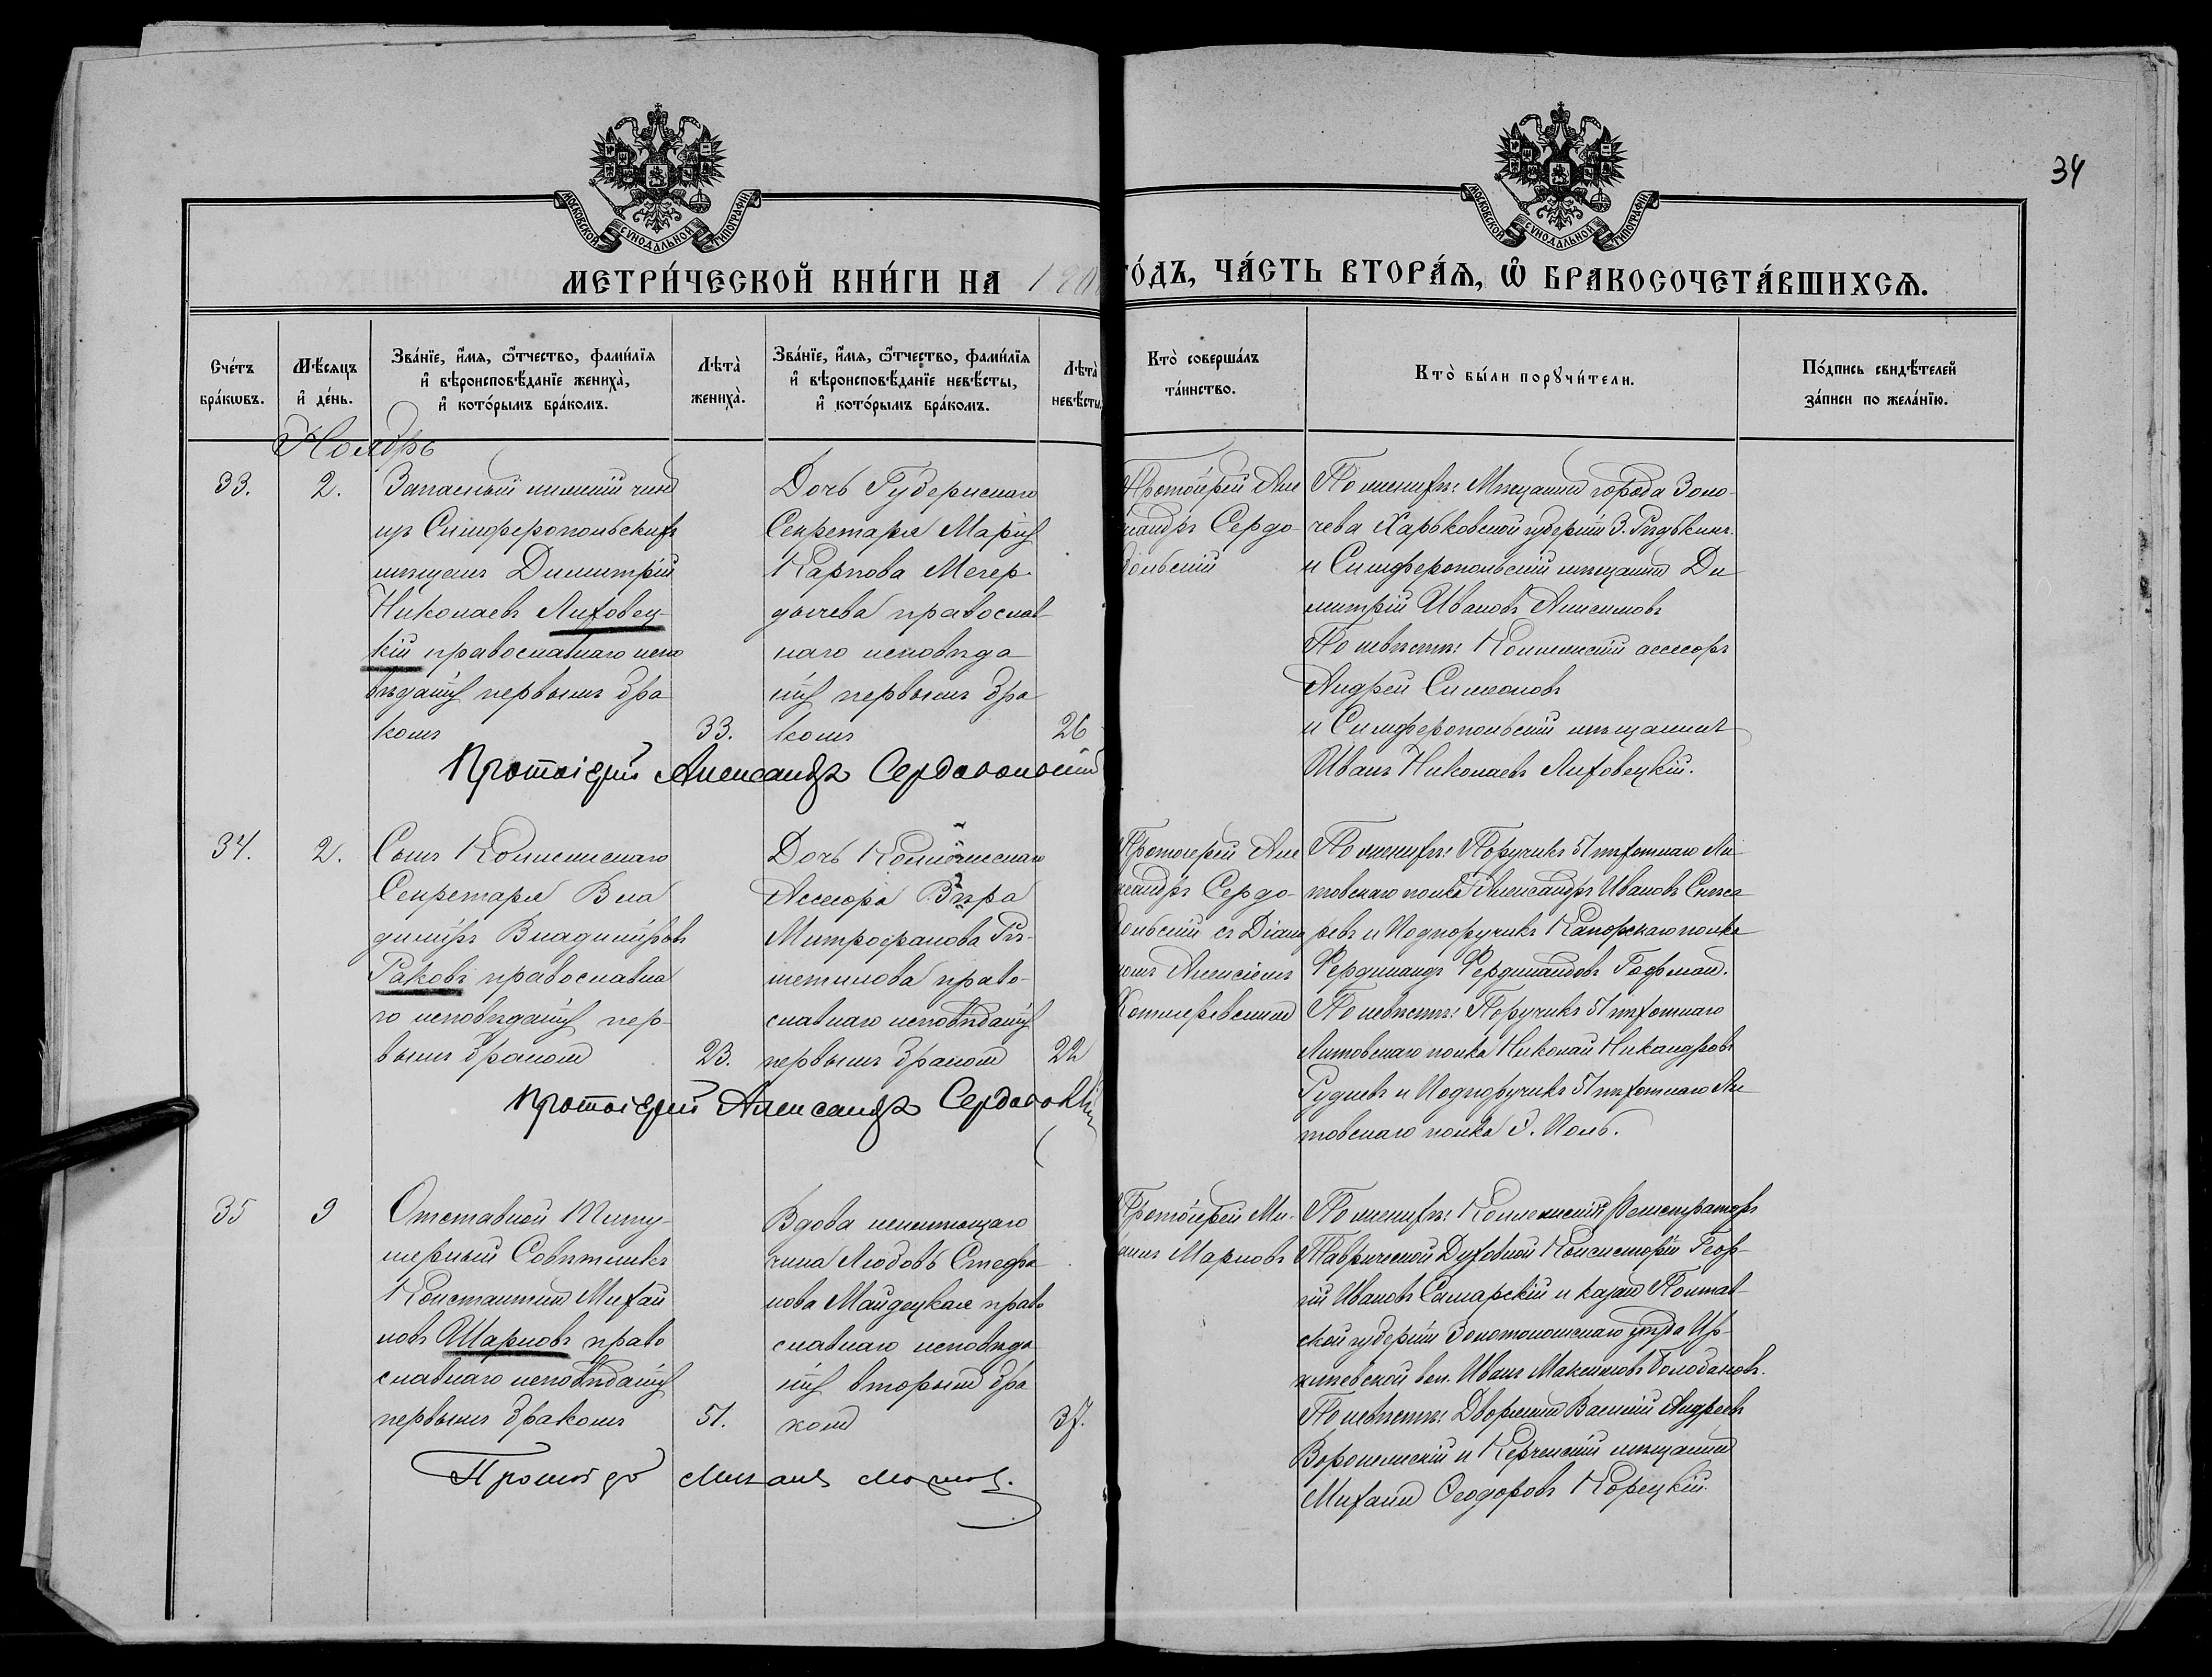 34
МОСКОВСКОЙ СѴНОДАЛЬНОЙ ТИПОГРАФІИ
МОСКОВСКОЙ СѴНОДАЛЬНОЙ ТИПОГРАФІИ
МЕТРИ́ЧЕСКОЙ КНИ́ГИ НА 190
ГО́ДЪ, ЧА́СТЬ ВТОРА́Ѧ, Ѡ҆ БРАКОСОЧЕТА́ВШИХСѦ.
Сче́тъ
бра́кѡвъ.
Мѣ́сяцъ
и҆ де́нь.
Зва́нїе, и҆́мя, ѻ҆́тчество, фами́лїя
и҆ вѣроисповѣ́данїе жениха̀,
и҆ кото́рымъ бра́комъ.
Лѣта̀
жениха̀.
Зва́нїе, и҆́мя, ѻ҆́тчество, фами́лїя
и҆ вѣроисповѣ́данїе невѣ́сты,
и҆ кото́рымъ бра́комъ.
Лѣта̀
невѣ́сты
Кто̀ соверша́лъ
та́инство.
Кто̀ бы́ли порꙋчи́тели.
По́дпись свидѣ́телей
за́писи по жела́нїю.
Ноябрь
33.
2.
Запасный нижній чинъ
изъ Симферопольскихъ
мѣщанъ Димитрій
Николаевъ Лиховец-
кій православнаго испо
вѣданія первымъ бра
комъ
33.
Дочь Губернскаго
Секретаря Марія
Карпова Мегер-
дычева православ
наго исповѣда
нія первымъ бра
комъ
26
Протоіерей Александръ Сердобольскій
Протоіерей Але
ксандръ Сердо-
больскій
По женихѣ: Мѣщанинъ города Золо-
чева Харьковской губерніи З. Рѣдькинъ
и Симферопольскій мѣщанинъ Ди
митрій Ивановъ Анисимовъ
По невѣстѣ: Коллежскій ассесоръ
Андрей Симоновъ
и Симферопольскій мѣщанинъ
Иванъ Николаевъ Лиховецкій.
34.
2.
Сынъ Коллежскаго
Секретаря Вла
диміръ Владиміровъ
Раковъ православна
го исповѣданія пер-
вымъ бракомъ
23.
Дочь Коллежскаго
Ассесора Вѣра
Митрофанова Рѣ-
шетилова право-
славнаго исповѣданія
первымъ бракомъ
22
Протоіерей Александръ Сердобольскій
Протоіерей Але
ксандръ Сердо-
больскій съ Діако
номъ Алексіемъ
По женихѣ: Поручикъ 51 пѣхотнаго Ли
товскаго полка Александръ Ивановъ
и Подпоручикъ Капорскаго полка
Фердинандъ Фердинандовъ Гофманъ.
По невѣстѣ: Поручикъ 51 пѣхотнаго
Литовскаго полка Николай Никандровъ
Рудневъ и Подпоручикъ 51 пѣхотнаго Ли
товскаго полка Э. Поль.
35
9
Отставной Титу-
лярный Совѣтникъ
Константинъ Михай
ловъ Шарповъ право
славнаго исповѣданія
первымъ бракомъ
51.
Вдова неимѣющаго
чина Любовь Стефа
нова Майдецкая право
славнаго исповѣда
нія вторымъ бра
комъ
37.
Протоіер Михаилъ Марковъ.
Протоіерей Ми-
хаилъ Марковъ
По женихѣ: Коллежскій Регистраторъ
Таврической Духовной Консисторіи Геор-
гій Ивановъ Самарскій и казакъ Полтав-
ской губерніи Золотоношскаго уѣзда Ир-
клѣевской вол. Иванъ Максимовъ Голобановъ.
По невѣстѣ: Дворянинъ Василій Андреевъ
Воронжскій и Керченскій мѣщанинъ
Михаилъ Ѳеодоровъ Корецкій.